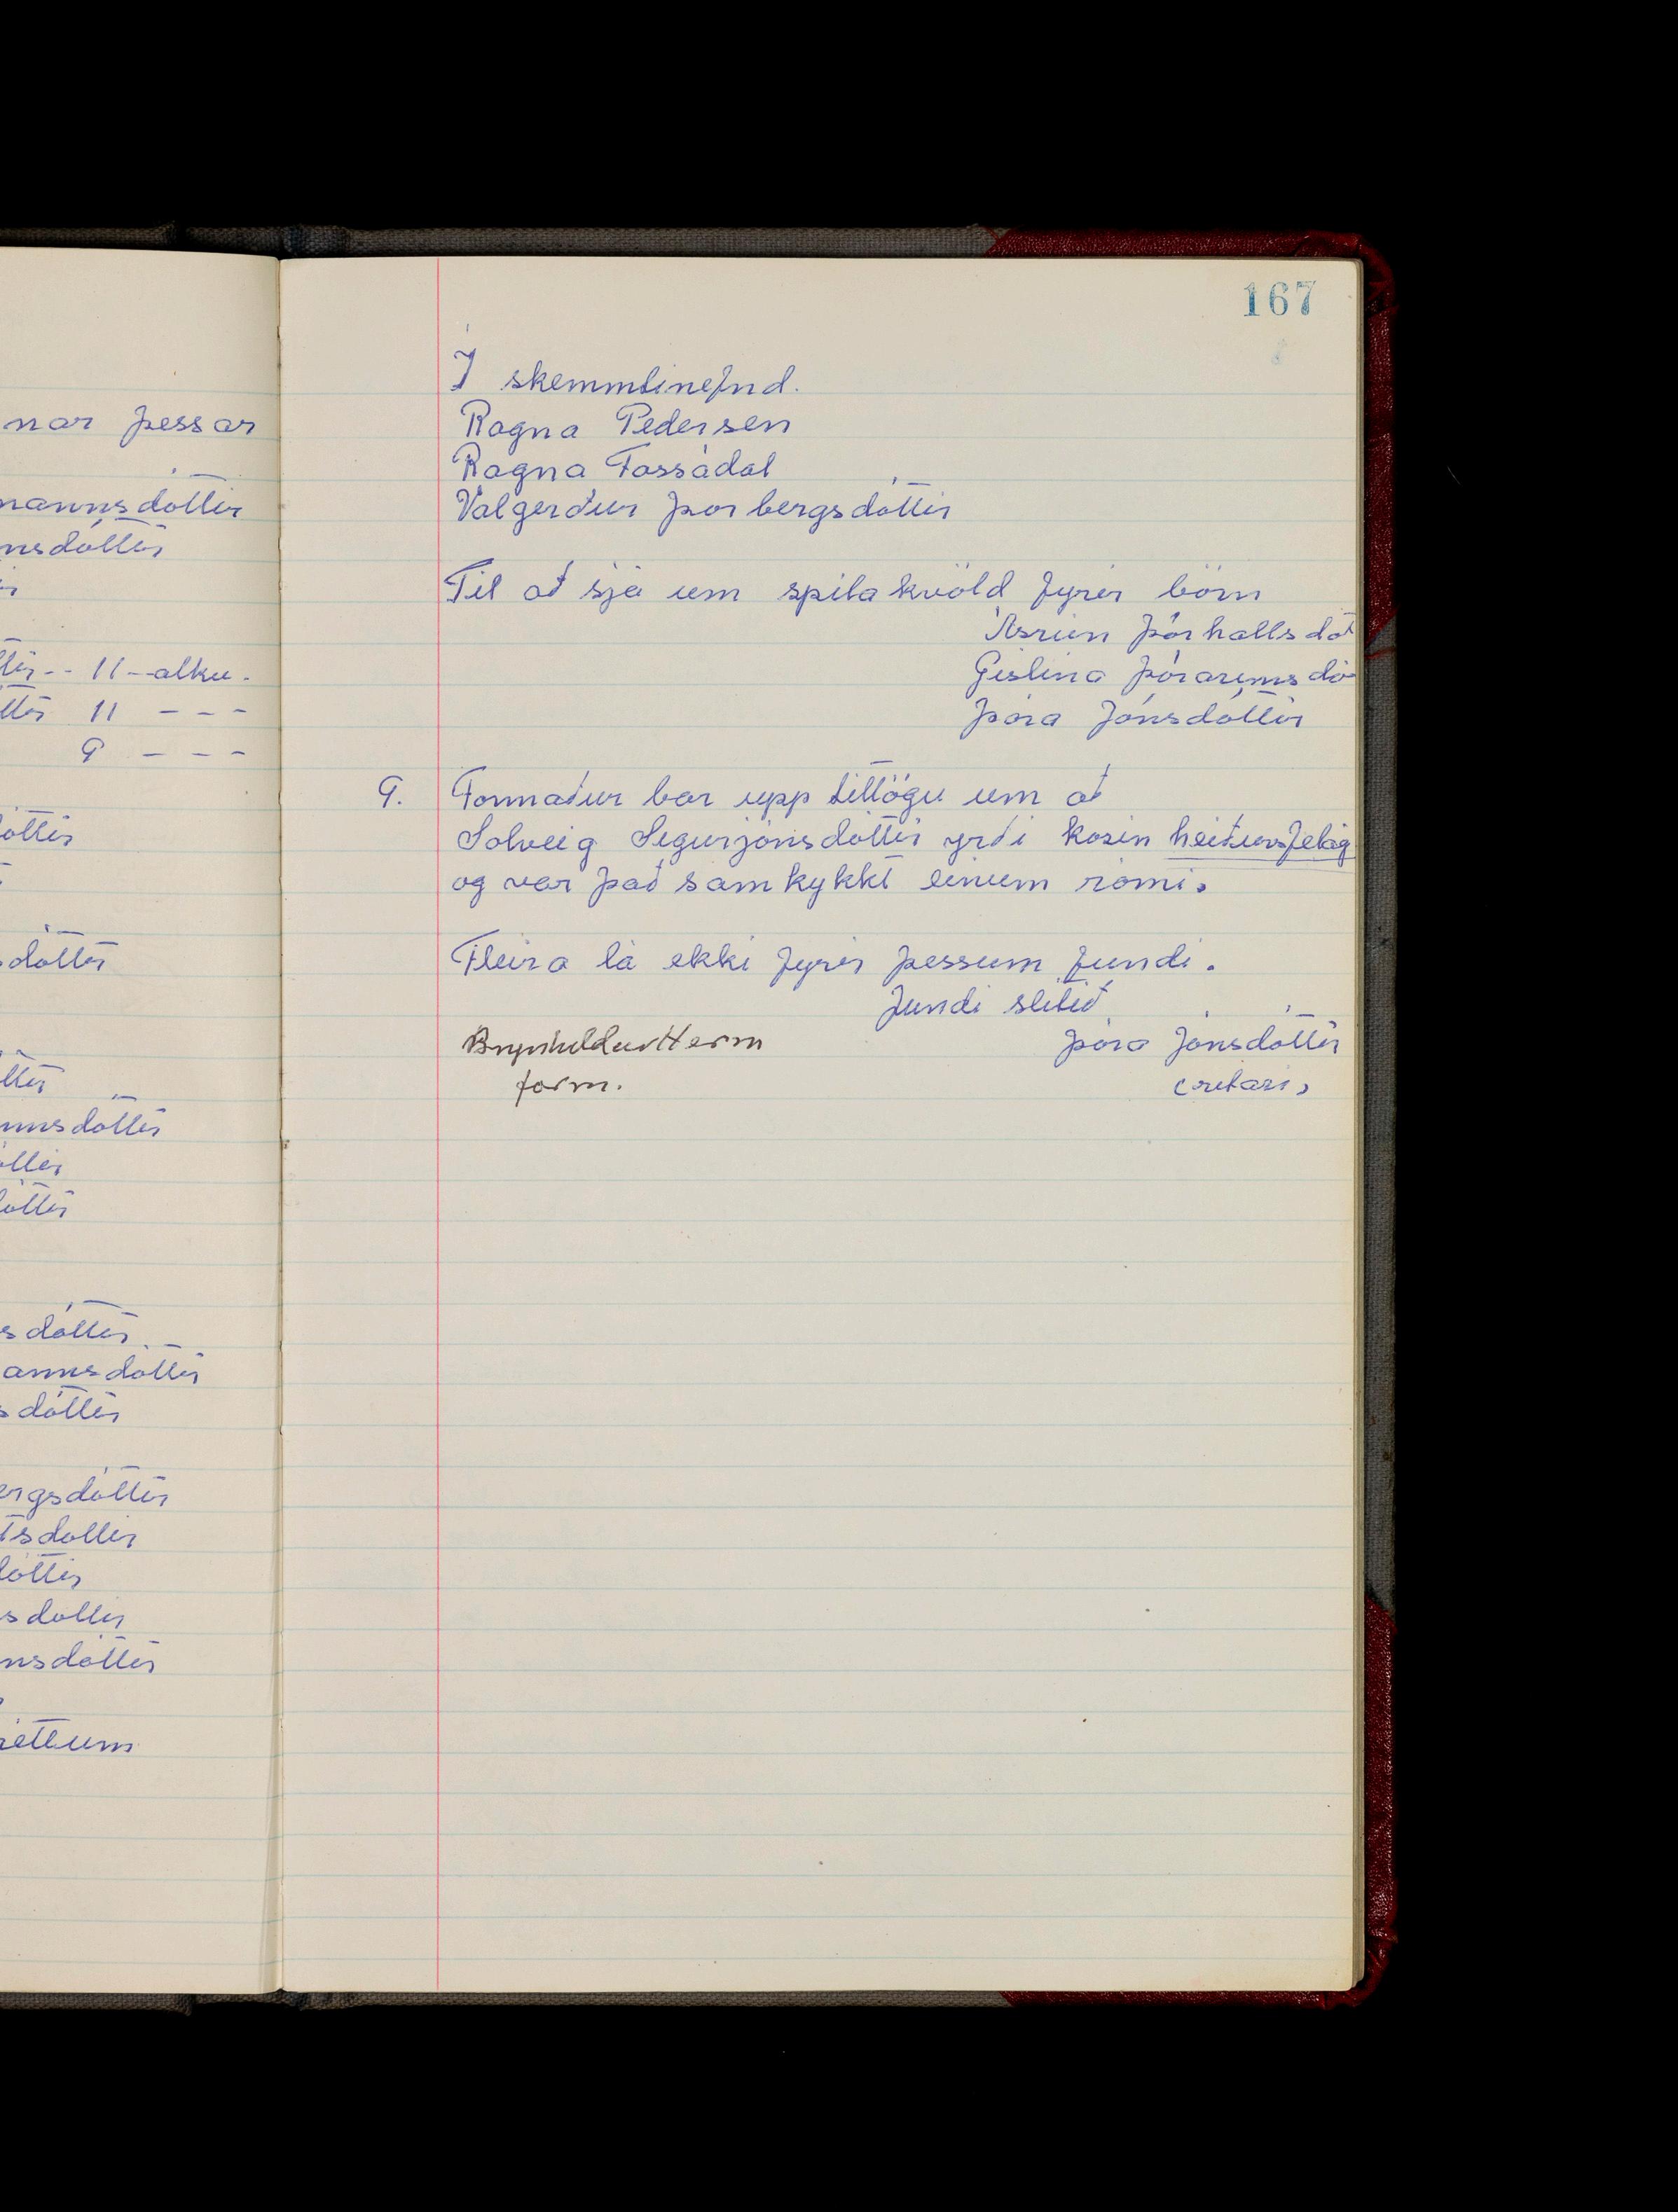 167
Í skemmtinefnd.
Ragna Pedersen
Ragna Fossádal
Valgerður Þorbergsdóttir
Til að sjá um spilakvöld fyrir börn
Ásrún Þórhallsdót
Gislina Þórarinsdó
Þóra Jónsdóttir
9. Formaður bar upp tillögu um að
Solveig Sigurjónsdóttir yrði kosin heiðursfelag
og var það samþykkt einum rómi.
Fleira lá ekki fyrir þessum fundi.
fundi slitið
Brynhildur Herm
form.
Þóra Jónsdóttir
(ritari)
nar þessar
mannsdóttir
nsdóttir
ttir -- 11 --atkv.
ttir 11 - - -
9 - - -
óttir
sdóttir
ttir
nnsdóttir
óttir
dóttir
sdóttir
annsdóttir
sdóttir
ergsdóttir
tsdóttir
dóttir
sdóttir
nsdóttir
réttum